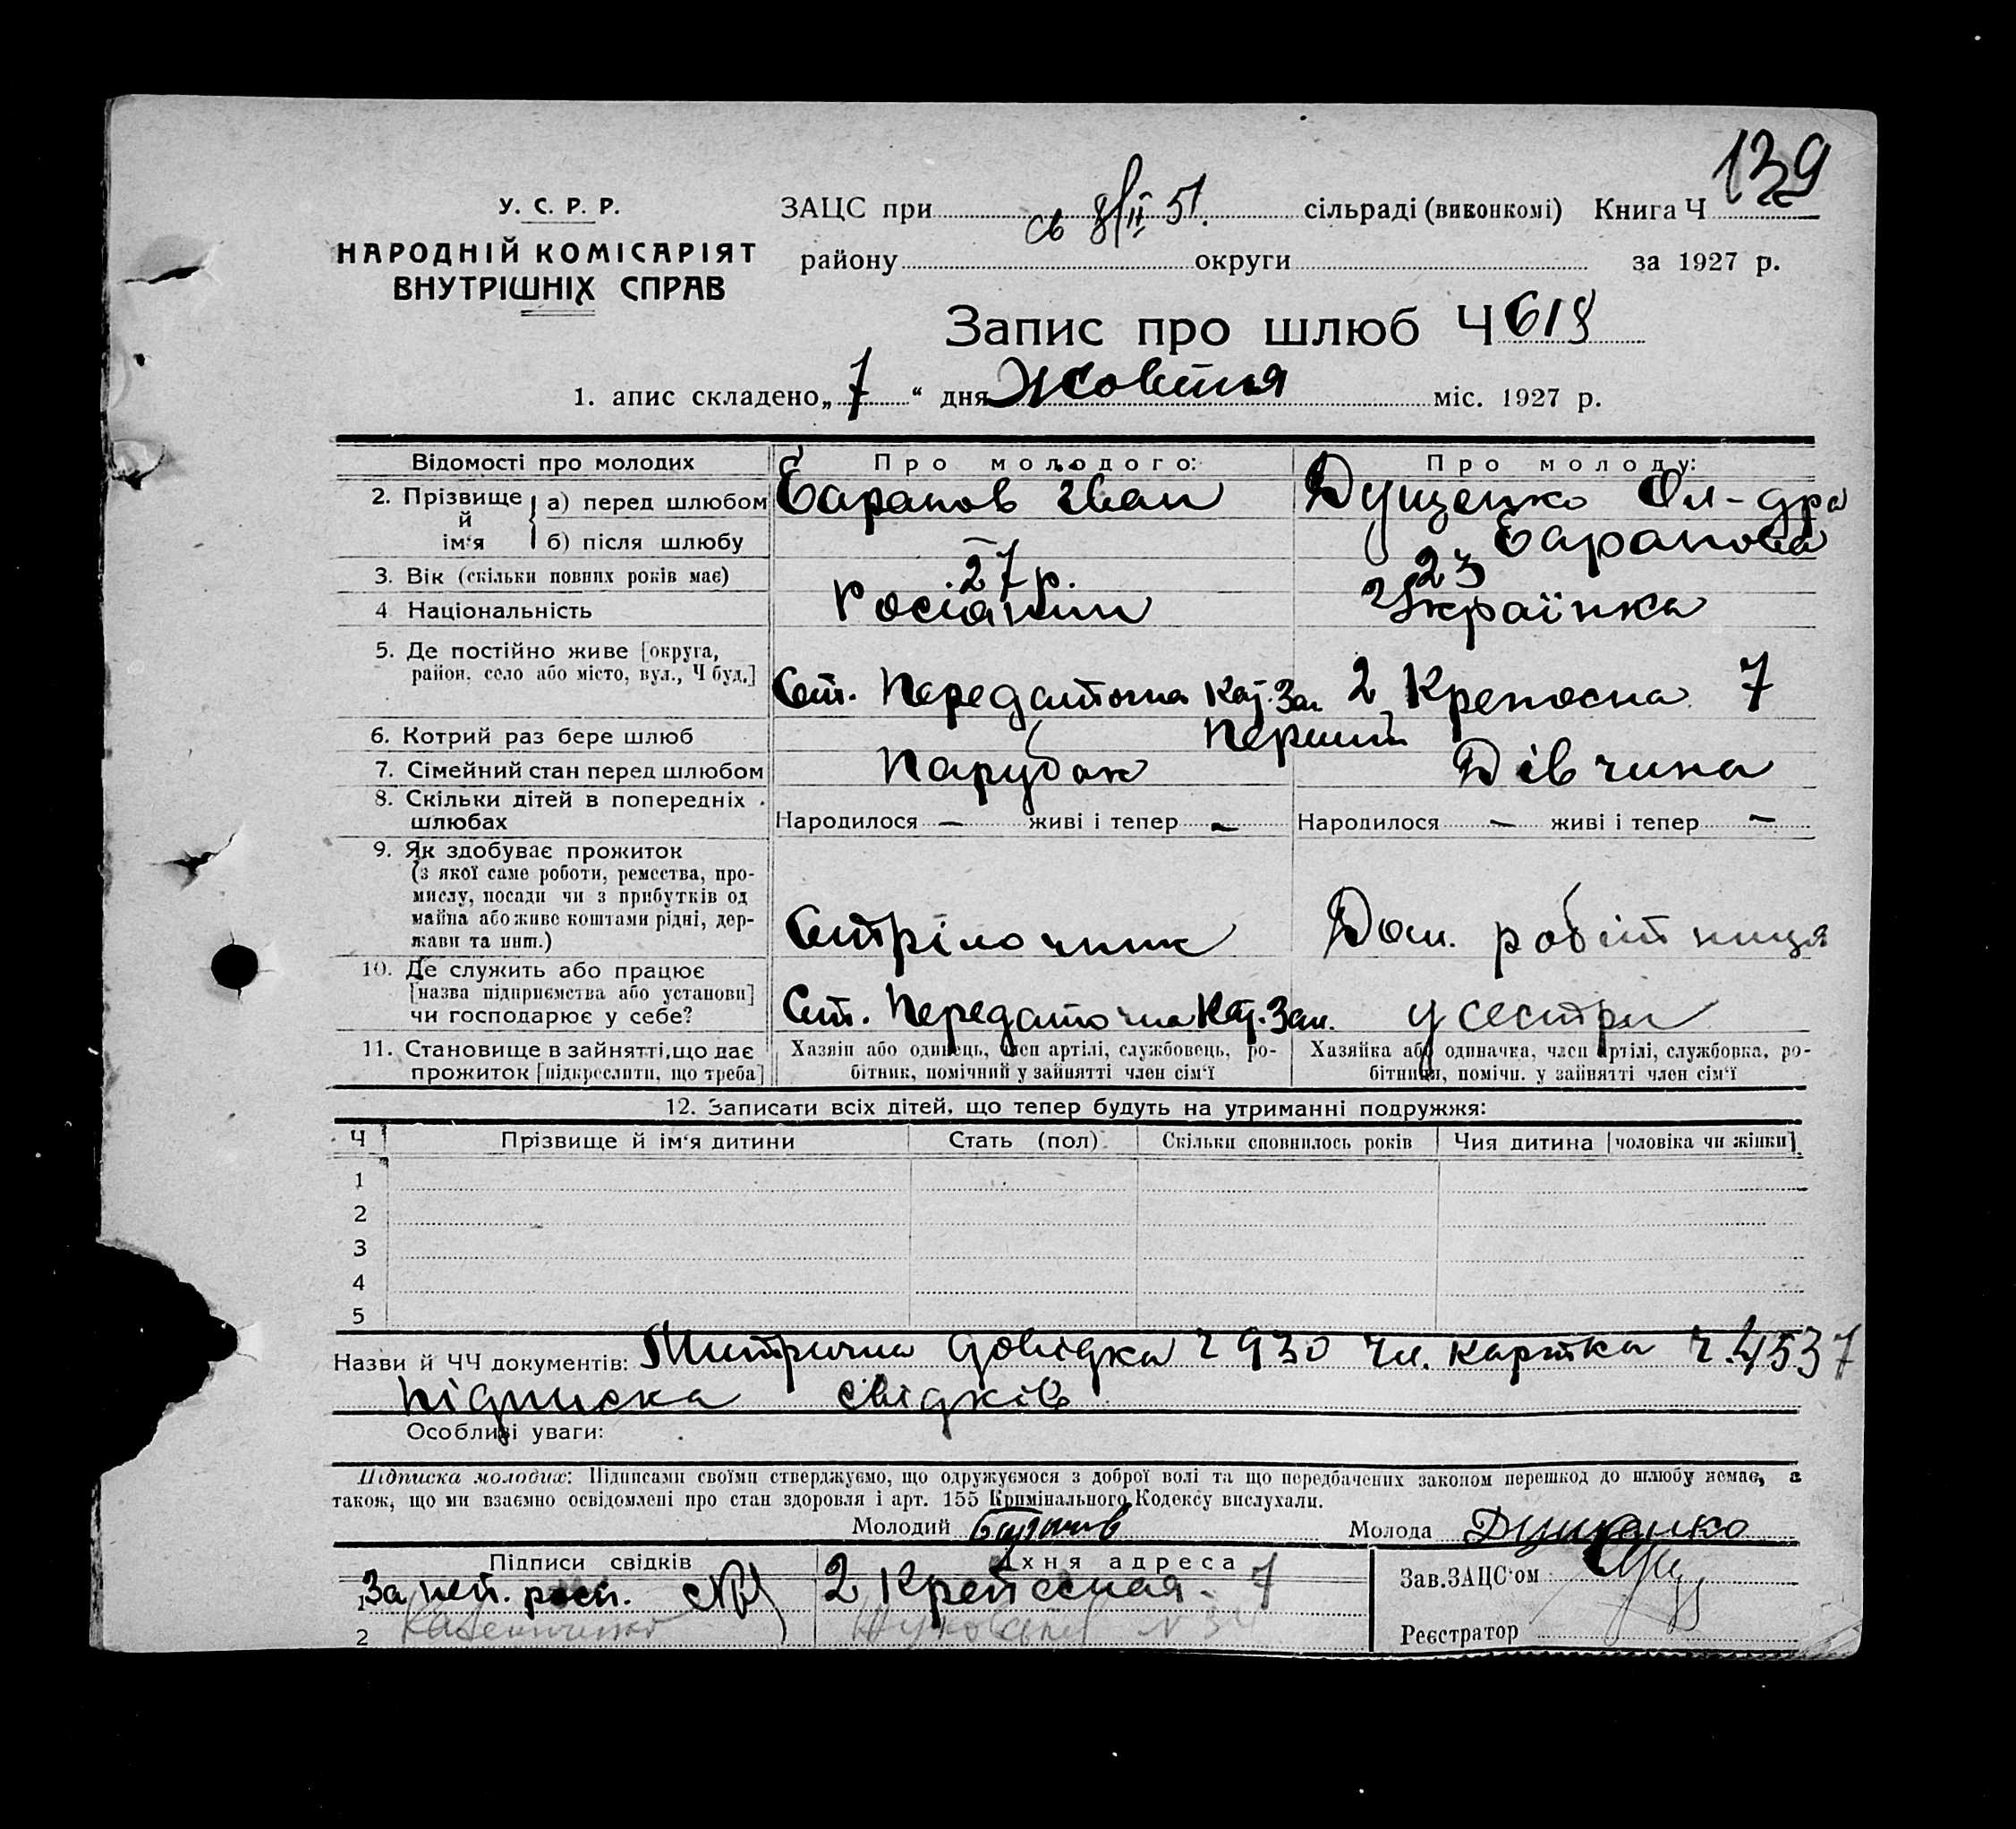 139
У. С. Р. Р.
НАРОДНІЙ КОМІСАРІЯТ
ВНУТРІШНІХ СПРАВ
ЗАЦС при св 8/II 51. сільраді (виконкомі) Книга Ч
району округи за 1927 р.
Запис про шлюб Ч 618
1. апис складено „ 7 “ дня Жовтня міс. 1927 р.
Відомості про молодих Про молодого: Про молоду:
2. Прізвище й ім‘я а) перед шлюбом Баранов Іван Дущенко Ол-дра
б) після шлюбу — Баранова
3. Вік (скільки повних років має) 27 р. 23
4 Національність Росіянин Українка
5. Де постійно живе [округа,
район, село або місто, вул., Ч буд.] Ст. Передаточна Кат. Зал. 2 Крепосна 7
6. Котрий раз бере шлюб Перший
7. Сімейний стан перед шлюбом Парубок Дівчина
8. Скільки дітей в попередніх
шлюбах Народилося — живі і тепер — Народилося — живі і тепер —
9. Як здобуває прожиток
(з якої саме роботи, ремества, про-
мислу, посади чи з прибутків од
майна або живе коштами рідні, дер-
жави та инш.) Стрілочник Дом. робітниця
10. Де служить або працює
[назва підприємства або установи]
чи господарює у себе? Ст. Передаточна Кат. Зал. у сестри
11. Становище в зайнятті, що дає
прожиток [підкреслити, що треба]
Хазяїн або одинець, член артілі, службовець, ро-
бітник, помічний у зайнятті член сім‘ї
Хазяйка або одиначка, член артілі, службовка, ро-
бітниця, помічн. у зайнятті член сім‘ї
12. Записати всіх дітей, що тепер будуть на утриманні подружжя:
Ч Прізвище й ім‘я дитини Стать (пол) Скільки сповнилось років Чия дитина [чоловіка чи жінки]
1
2
3
4
5
Назви й ЧЧ документів: Митрична довідка ч 930 Чл. картка ч. 4537
підписка свідків
Особливі уваги:
Підписка молодих: Підписами своїми стверджуємо, що одружуємося з доброї волі та що передбачених законом перешкод до шлюбу немає, а
також, що ми взаємно освідомлені про стан здоровля і арт. 155 Кримінального Кодексу вислухали.
Молодий Баранов Молода Дущенко
Підписи свідків Їхня адреса Зав. ЗАЦС‘ом
1 За неп. росп. 2 Крепосная - 7
2
Реєстратор